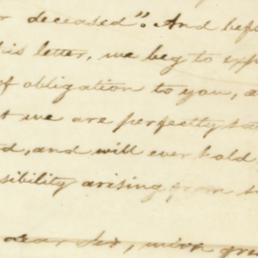 r deceased". And befo
his letter, we beg to exp
of obligation to you, a
t we are perfectly sa
d, and will ever hold
sibility arising from t
dear Sir, with gre